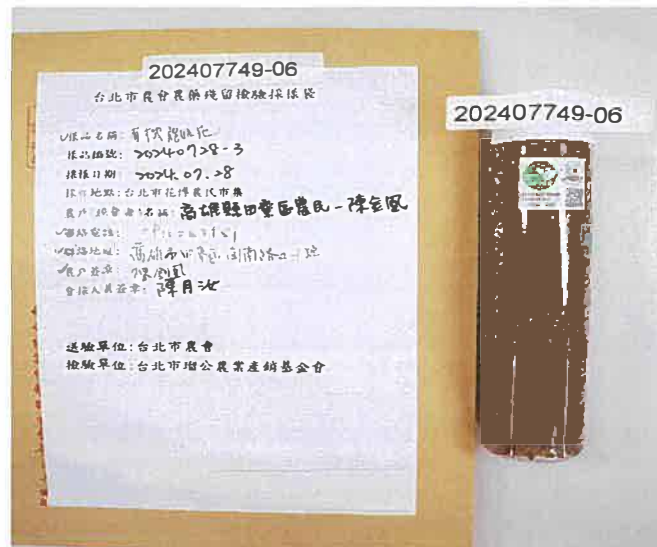 202407749-06
台北市農會農藥殘留檢驗採樣袋
樣品名稱:有機
樣品編號: 20240728-3
採樣日期: 2024.07.28
採樣地點:台北市花博農民市集
名稱:高雄縣田寮區農民-陳金鳳
聯絡電話:
聯絡地址:高雄市
農戶簽章:陳金鳳
會採人員簽章:陳月汝
送驗單位:台北市農會
檢驗單位:台北市瑠公農業產銷基金會
202407749-06